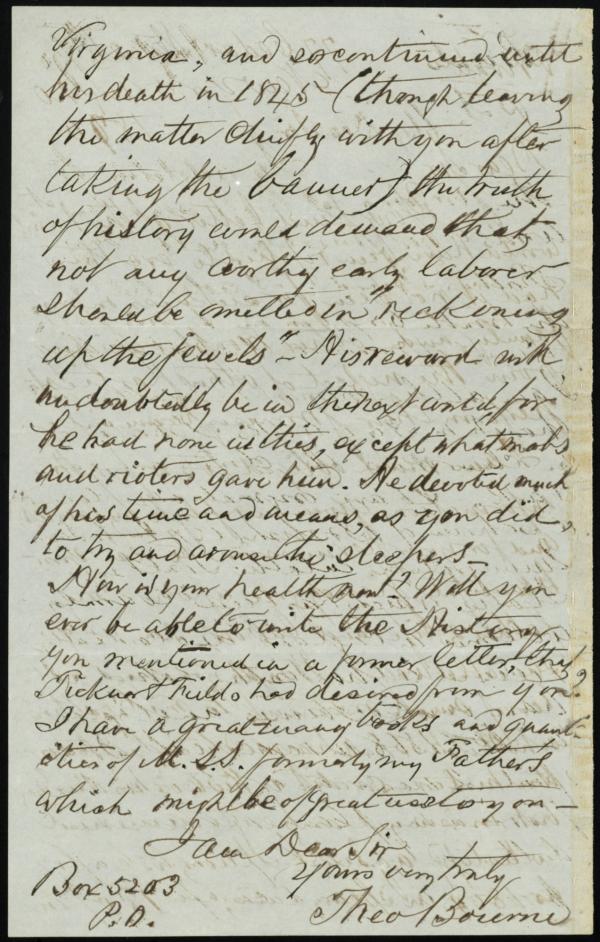 Virginia, and so continued until
his death in 1845 - (though leaving
the matter chiefly with you after
taking the banner) the truth
of history would demand that
not any worthy early laborer
should be omitted in "reckoning
up the jewels" - His reward will
undoubtedly be in the next world, for
he had none in this, except what mobs
and rioters gave him. He devoted much
of his time and means, as you did,
to try and arouse the "sleepers -
How is your health now? Will you
ever be able to write the History
you mentioned in a former letter, that
Ticknor & Fields had desired from you?
I have a great many books and quant-
ities of M.S.S. formerly my Father's
which might be of great use to you -
I am Dear Sir
Yours very truly
Theo Bourne
Box 5203
P.O.